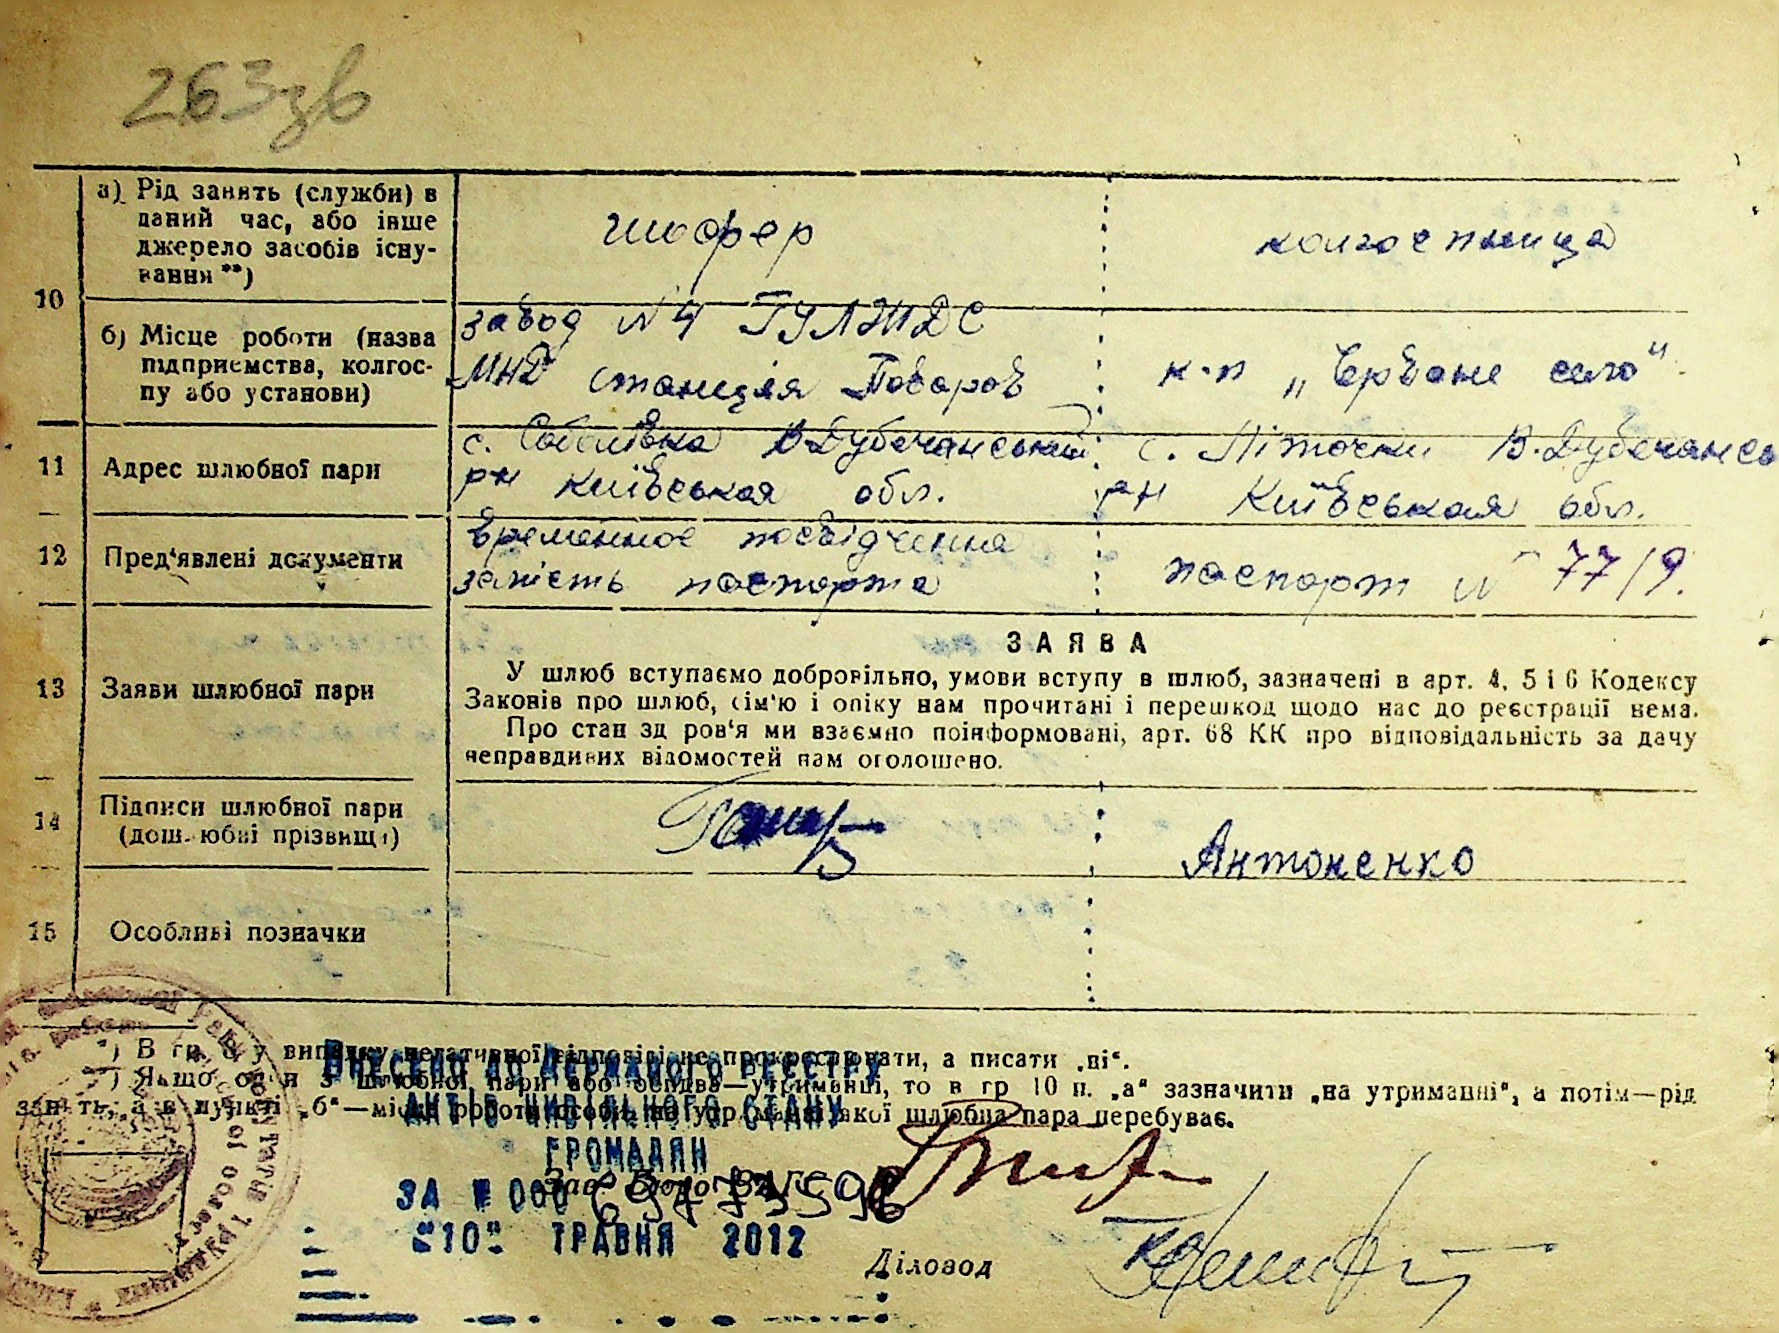 263зв
а) Рід занять (служби) в
даний час, або інше
джерело засобів існу-
вання **)
шофер
колгоспница
10
б) Місце роботи (назва
підприємства, колгос-
пу або установи)
завод №4 ГУЛЖДС
станция Поваров
к-п „Червоне село"
11
Адрес шлюбної пари
с. Соболівка В Дубечанський
рн Київськая обл.
с. Літочки В.Дубечансь
рн Київськая обл.
12
Пред'явлені документи
временное посвідчення
замість паспорта
паспорт № 77/9.
13
Заяви шлюбної пари
ЗАЯВА
У шлюб вступаємо добровільно, умови вступу в шлюб, зазначені в арт. 4, 5 і 6 Кодексу
Законів про шлюб, сім'ю і опіку нам прочитані і перешкод щодо нас до реєстрації нема.
Про стан здоров'я ми взаємно поінформовані, арт. 68 КК про відповідальність за дачу
неправдивих відомостей нам оголошено.
14
Підписи шлюбної пари
(дошлюбні прізвища)
Антоненко
15
Особливі позначки
*) В гр. у випадку негативної відповіді не прокреслювати, а писати „ні".
**) Якщо один з шлюбної пари або обидва—утриманці, то в гр 10 п. „а" зазначити „на утриманні", а потім—рід
занять, а в пункті „б"—місце роботи особи, на утриманні якої шлюбна пара перебуває.
Внесено до Державного реєстру
актів цивільного стану
громадян
Зав. Бюро ЗАГС
ЗА № 000
"10" ТРАВНЯ 2012
Діловод